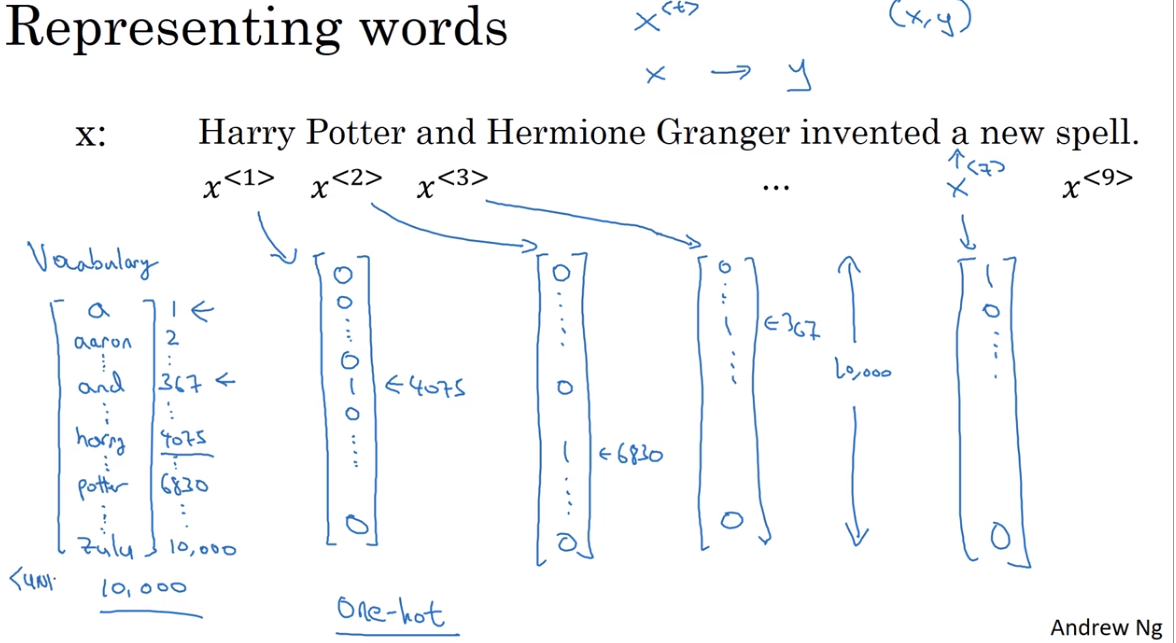 Representing words
x<t> (x,y)
x → y
x: Harry Potter and Hermione Granger invented a new spell.
x<1> x<2> x<3> ... x<7> x<9>
Vocabulary
a 1 ←
aaron 2
and 367 ←
harry 4075
potter 6830
zulu 10,000
10,000
0
0
0
1 ← 4075
0
0
0
0
1 ← 6830
0
0
1 ← 367
0
10,000
1
0
0
One-hot
Andrew Ng